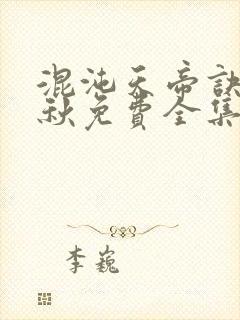 混沌天帝訣
秋免費全集
李巍